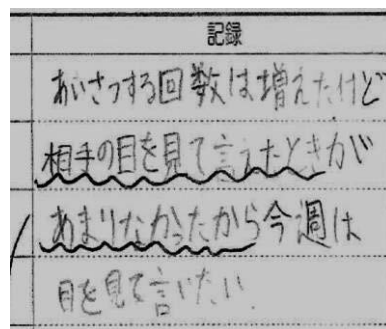 記録
あいさつする回数は増えたけど
相手の目を見て言えたときが
あまりなかったから今週は
目を見て言いたい。